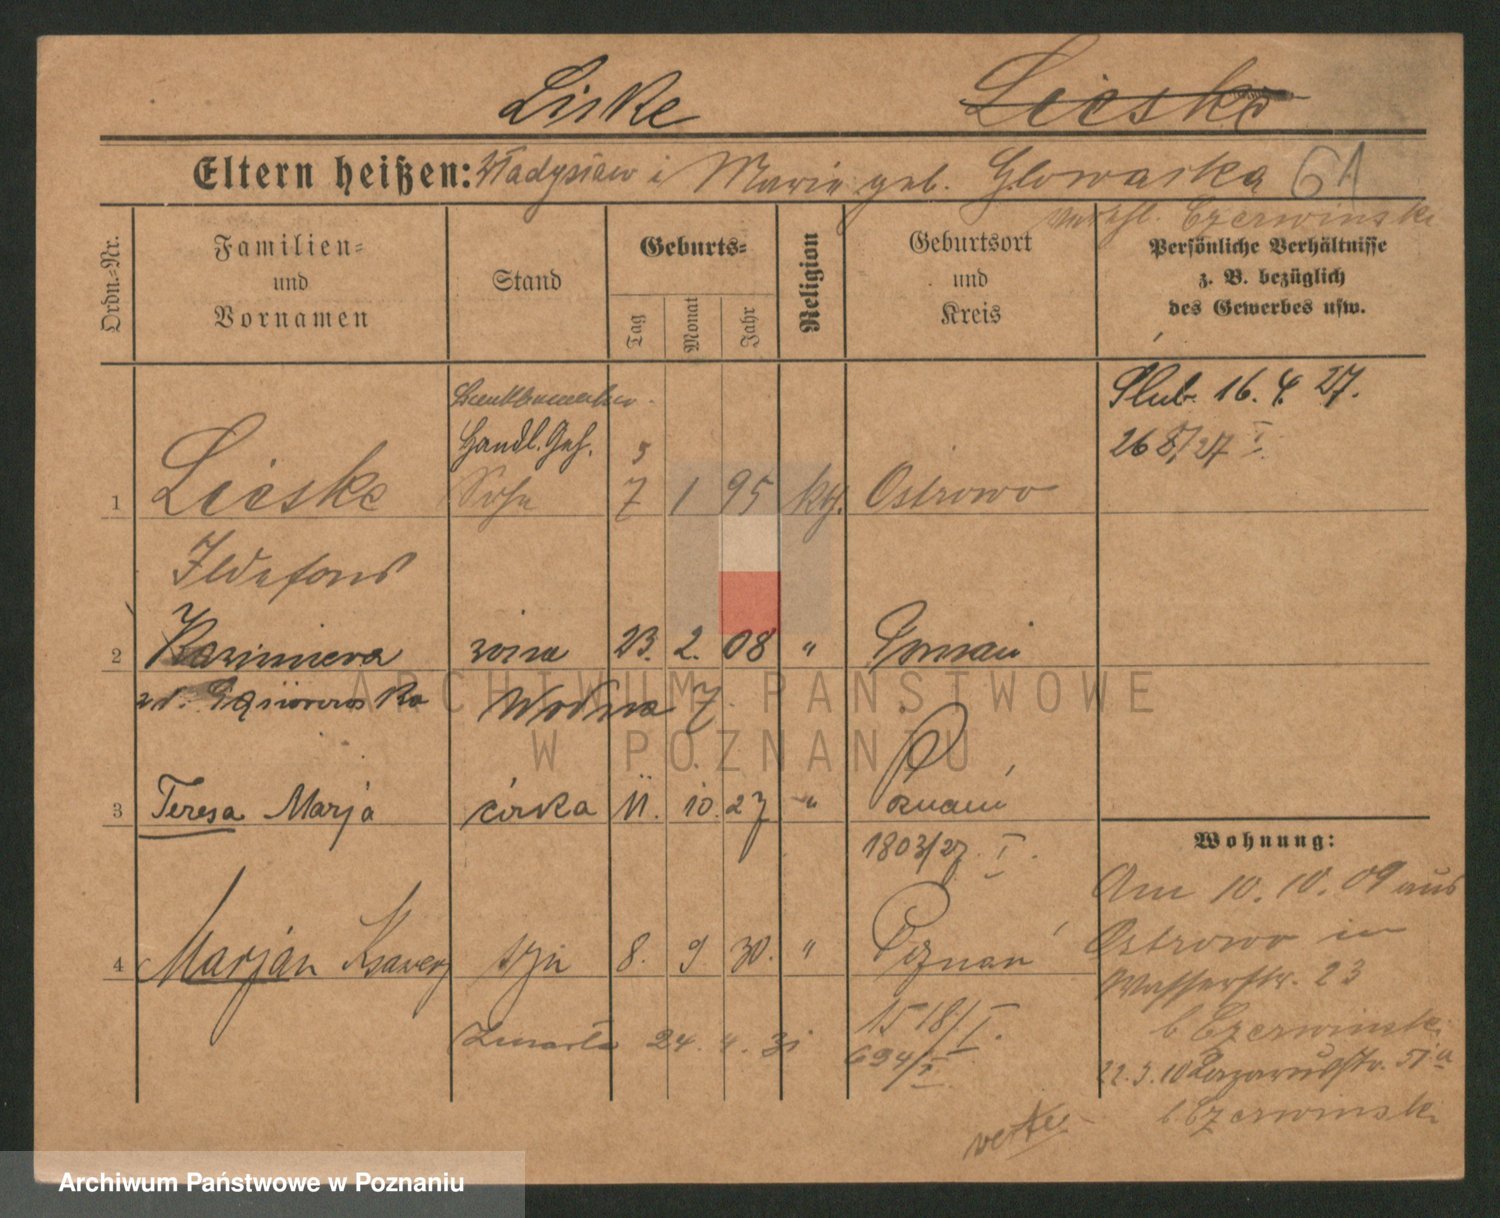 Liske Lieske
Eltern heißen: Władysław i Marie geb. Glowaska 61
verehl. Czerwinski
Ordn.=Nr.
Familien=
und
Vornamen
Stand
Geburts=
Tag
Monat
Jahr
Religion
Geburtsort
und
Kreis
Persönliche Verhältnisse
z. B. bezüglich
des Gewerbes usw.
Handl. Geh.
Ślub. 16. 4. 27.
5
26 8/27 I
1 Lieske Sohn 7 1 95 kth. Ostrowo
Ildefons
2 Kazimiera żona 23. 2. 08 "
3 Teresa Marja córka 11. 10. 27 " Poznań
1803/27. I.
Wohnung:
Am 10. 10. 09 aus
4 Marjan Ksawery syn 8. 9 30. " Poznań
Ostrowo in
Wasserstr. 23
b Czerwinski
1518/I.
24. 4. 31
694/I.
22. 3. 10 Lazarusstr. 51a
b. Czerwinski
ARCHIWUM PAŃSTWOWE
W POZNANIU
Archiwum Państwowe w Poznaniu